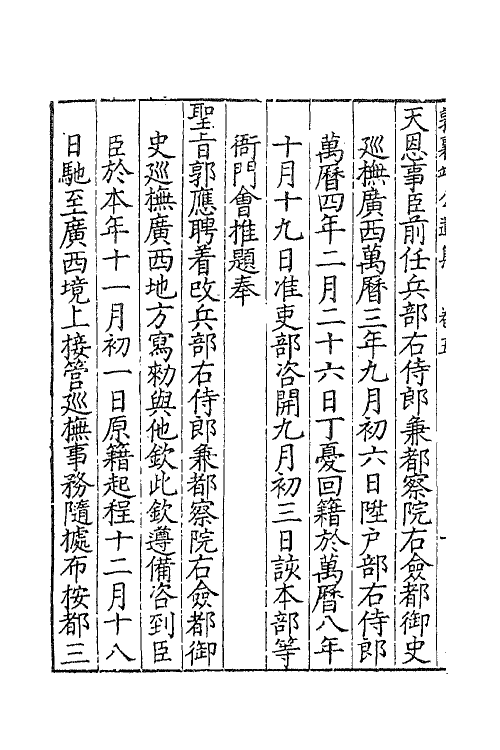 郭襄靖公遺集 卷五
天恩事臣前任兵部右侍郎兼都察院右僉都御史
廵撫廣西萬曆三年九月初六日陞戶部右侍郎
萬曆四年二月二十六日丁憂回籍於萬曆八年
十月十九日准吏部咨開九月初三日該本部等
衙門會推題奉
聖旨郭應聘着改兵部右侍郎兼都察院右僉都御
史廵撫廣西地方寫勑與他欽此欽遵備咨到臣
臣於本年十一月初一日原籍起程十二月十八
日馳至廣西境上接管廵撫事務隨據布按都三